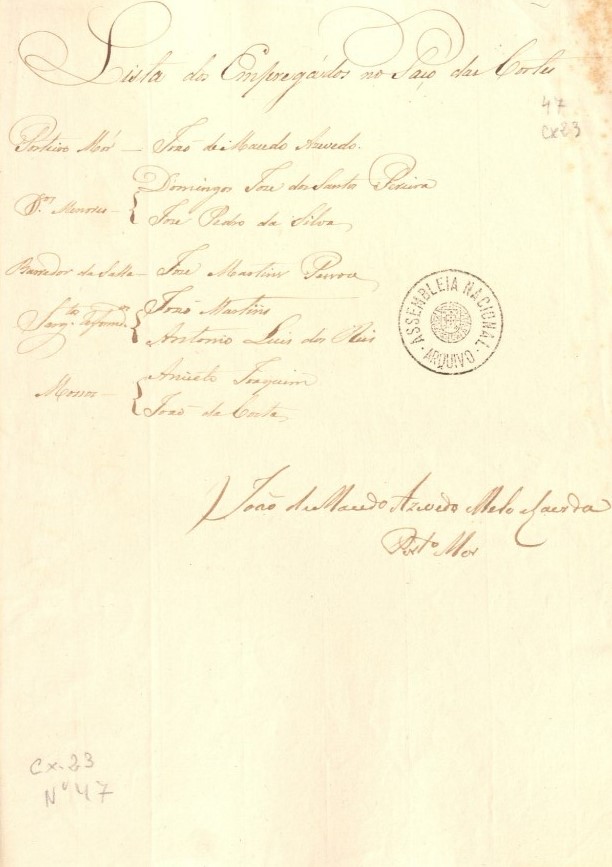 Lista dos Empregados no Paço das Cortes
47
cx 23
Porteiro Mór — João de Macedo Azevedo.
D.os Menores — Domingos Jose dos Santos Pereira
Jose Pedro da Silva
Barredor da Salla — Jose Martins
Sarg.tos Reform.os João Martins
Antonio Luis dos Reis
Mossos — Aniceto Joaquim
João da Costa
ASSEMBLEIA NACIONAL
ARQUIVO
João de Macedo Azevedo Melo
Port.o Mor
Cx. 23
Nº 47